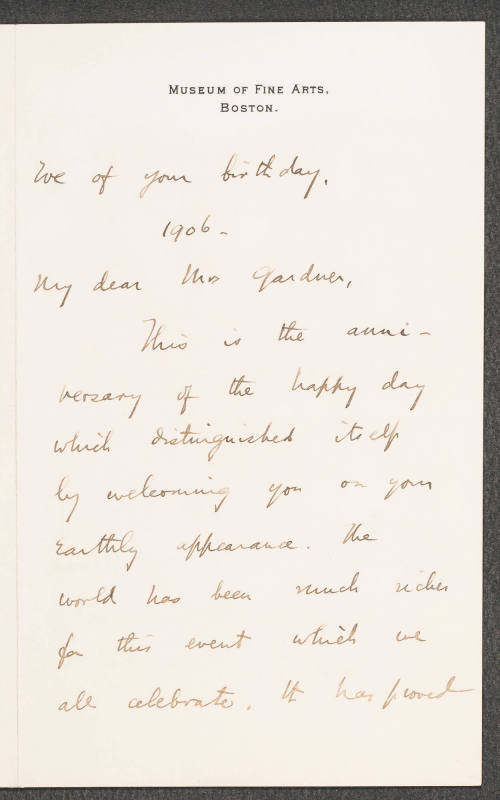 MUSEUM OF FINE ARTS,
BOSTON.
Eve of your birthday,
1906 -
My dear Mrs Gardner,
This is the anni-
versary of the happy day
which distinguished itself
by welcoming you on your
Earthly appearance. The
world has been much richer
for this event which we
all celebrate. It has proved